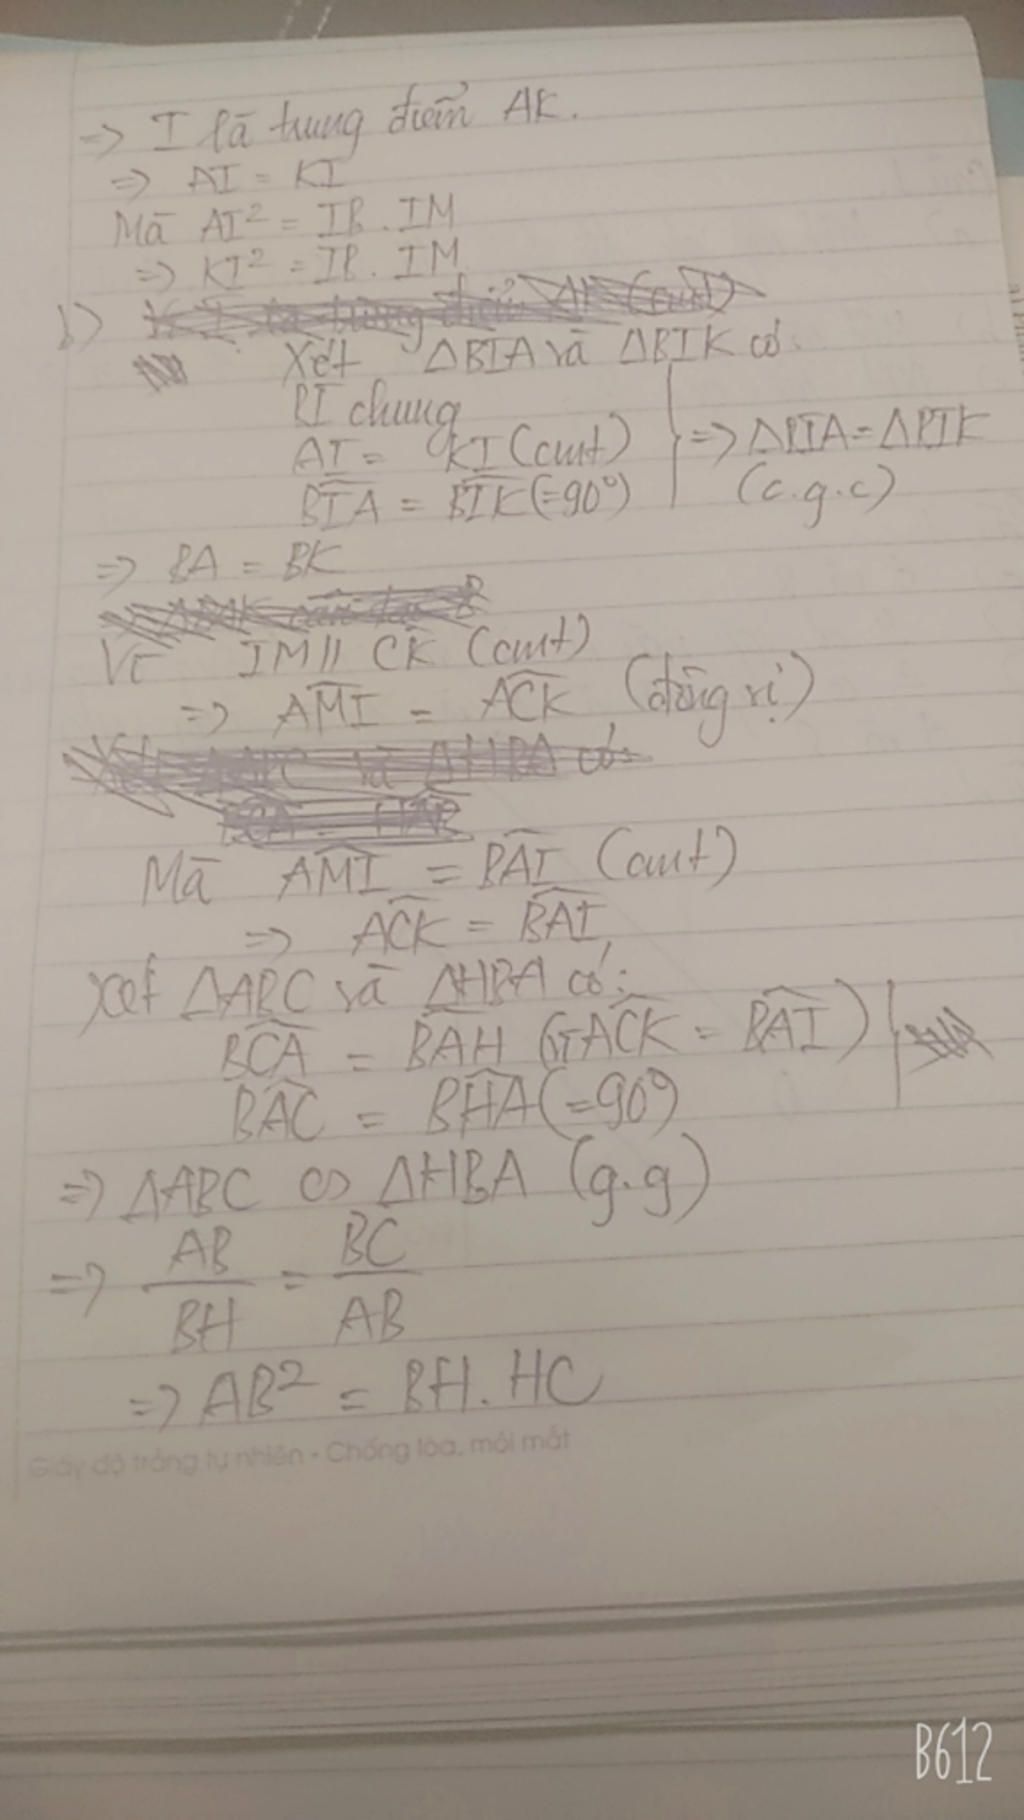 => I là trung điểm AK.
=> AI = KI
Mà AI² = IB . IM
=> KI² = IB . IM
b)
Xét ΔBIA và ΔBIK có
BI chung
AI = KI (cmt)
BIA = BIK (=90°)
=> ΔBIA = ΔBIK
(c.g.c)
=> BA = BK
Vì IM // CK (cmt)
=> AMI = ACK (đồng vị)
Mà AMI = BAI (cmt)
=> ACK = BAI
Xét ΔABC và ΔHBA có:
BCA = BAH (vì ACK = BAI)
BAC = BHA (=90°)
=> ΔABC ∽ ΔHBA (g.g)
=> AB/BH = BC/AB
=> AB² = BH . HC
Giấy độ trắng tự nhiên - Chống lóa, mỏi mắt
B612